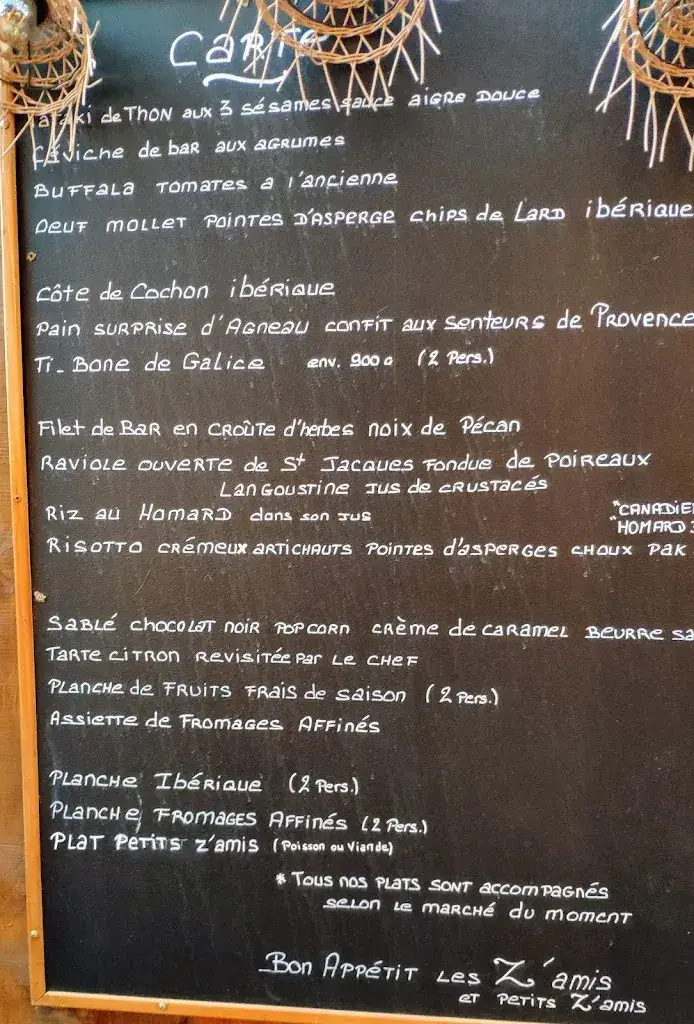 CARTE
Tataki de THON aux 3 sésames sauce aigre douce
Ceviche de bar aux agrumes
BUFFALA TOMATES a l'ancienne
OEUF MOLLET POINTES D'ASPERGE chips de LARD ibérique
Côte de Cochon ibérique
Pain SURPRISE d'Agneau confit aux senteurs de Provence
Ti-Bone de Galice env. 900g (2 Pers.)
Filet de Bar en croûte d'herbes noix de Pécan
Raviole ouverte de St Jacques Fondue de Poireaux
Langoustine Jus de crustacés
Riz au Homard dans son jus "CANADIEN
"HOMARD
Risotto crémeux artichauts pointes d'asperges choux Pak
Sablé chocolat noir Popcorn crème de caramel Beurre sa
Tarte citron revisitée par le chef
Planche de Fruits frais de saison (2 Pers.)
Assiette de Fromages Affinés
Planche Ibérique (2 Pers.)
Planche Fromages Affinés (2 Pers.)
Plat Petits Z'amis (Poisson ou Viande)
* Tous nos plats sont accompagnés
selon le marché du moment
Bon Appétit les Z'amis
et petits Z'amis